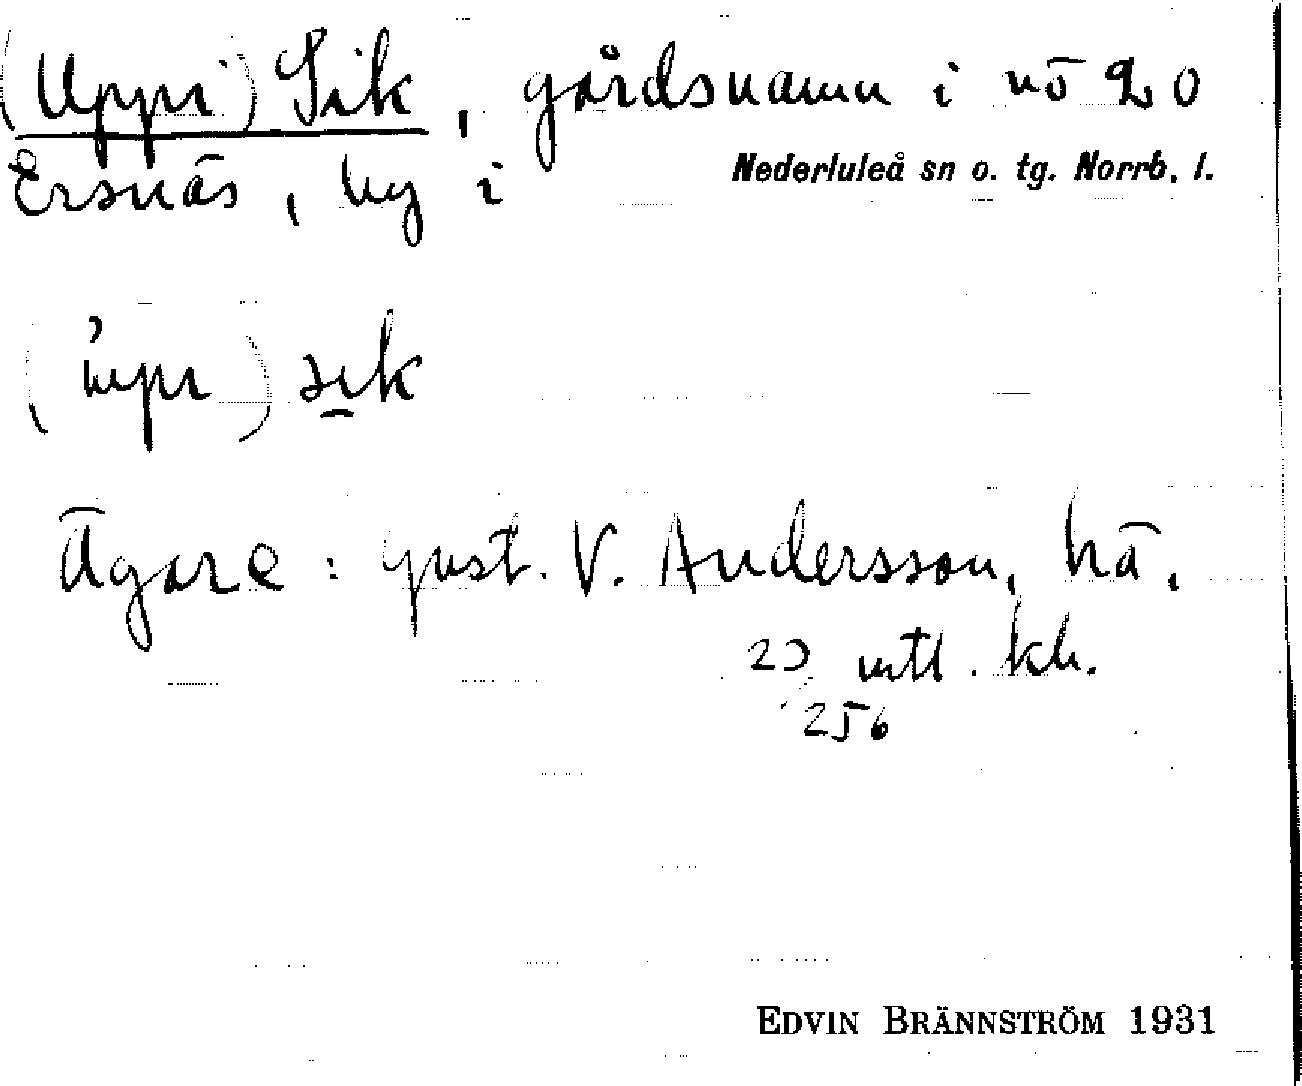 (Uppi) Sik, gårdsnamn i nō 20
Ersnäs, by i Nederluleå sn o. tg. Norrb. l.
sik
Ägare: Gust. V. Andersson, hä.
20 mtl. kh.
256
EDVIN BRÄNNSTRÖM 1931